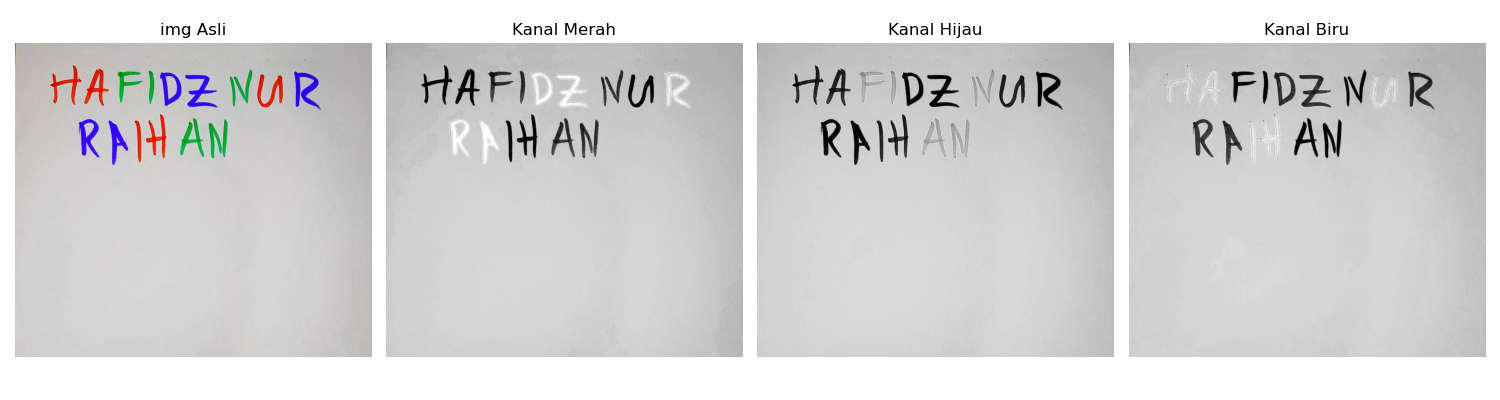 img Asli
HAFIDZ NUR
RAIHAN
Kanal Merah
HAFIDZ NUR
RAIHAN
Kanal Hijau
HAFIDZ NUR
RAIHAN
Kanal Biru
HAFIDZ NUR
RAIHAN